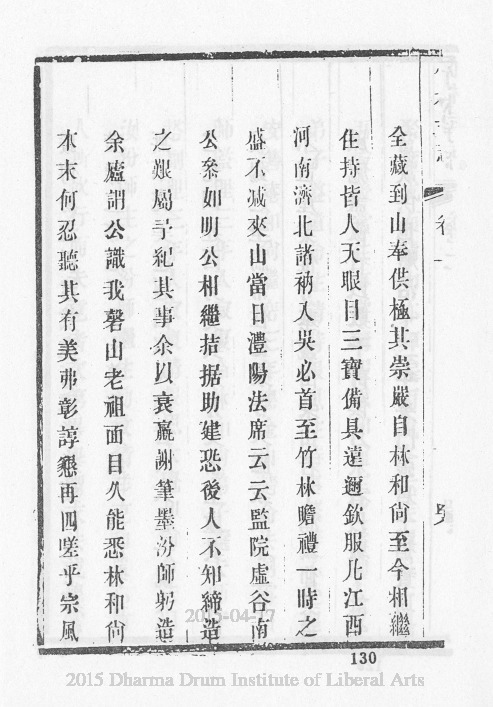 全藏到山奉供極其崇嚴自林和尙至今相繼
住持皆人天眼目三寶備具遠邇欽服凡江西
河南濟北諸衲入吳必首至竹林瞻禮一時之
盛不減夾山當日澧陽法席云云監院虛谷南
公叅如明公相繼拮据助建恐後人不知締造
之艱屬予紀其事余以衰羸謝筆墨汾師躬造
余廬謂公識我磬山老祖面目久能悉林和尙
本末何忍聽其有美弗彰諄懇再四嗟乎宗風
卷一
130
2015-04-17
2015 Dharma Drum Institute of Liberal Arts